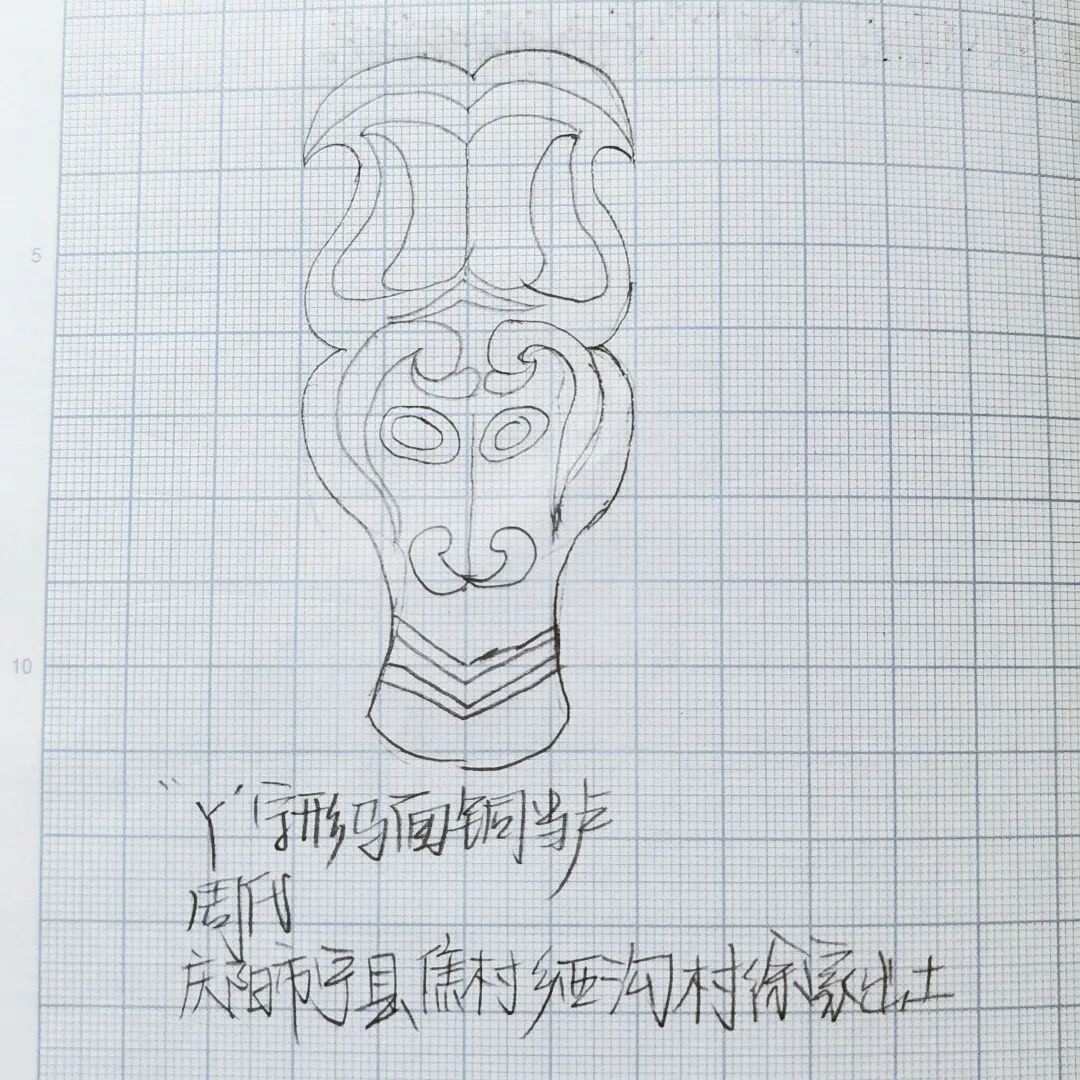 5
10
“丫”字形马面铜当卢
周代
庆阳市宁县焦村乡西沟村徐家出土